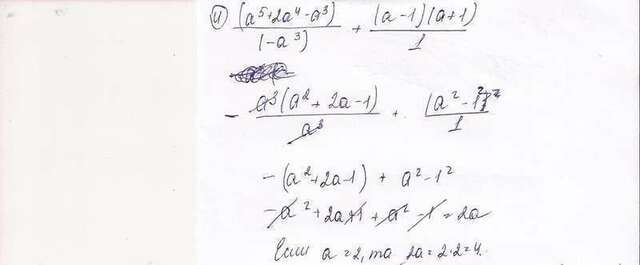 4) (a⁵+2a⁴-a³)/(-a³) + (a-1)(a+1)/1
- a³(a²+2a-1)/a³ + (a²-1²)/1
-(a²+2a-1) + a²-1²
-a²+2a+1+a²-1=2a
Если a=2, то 2a=2·2=4.